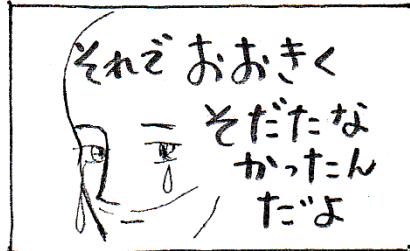 それで おおきく
そだたな
かったん
だよ